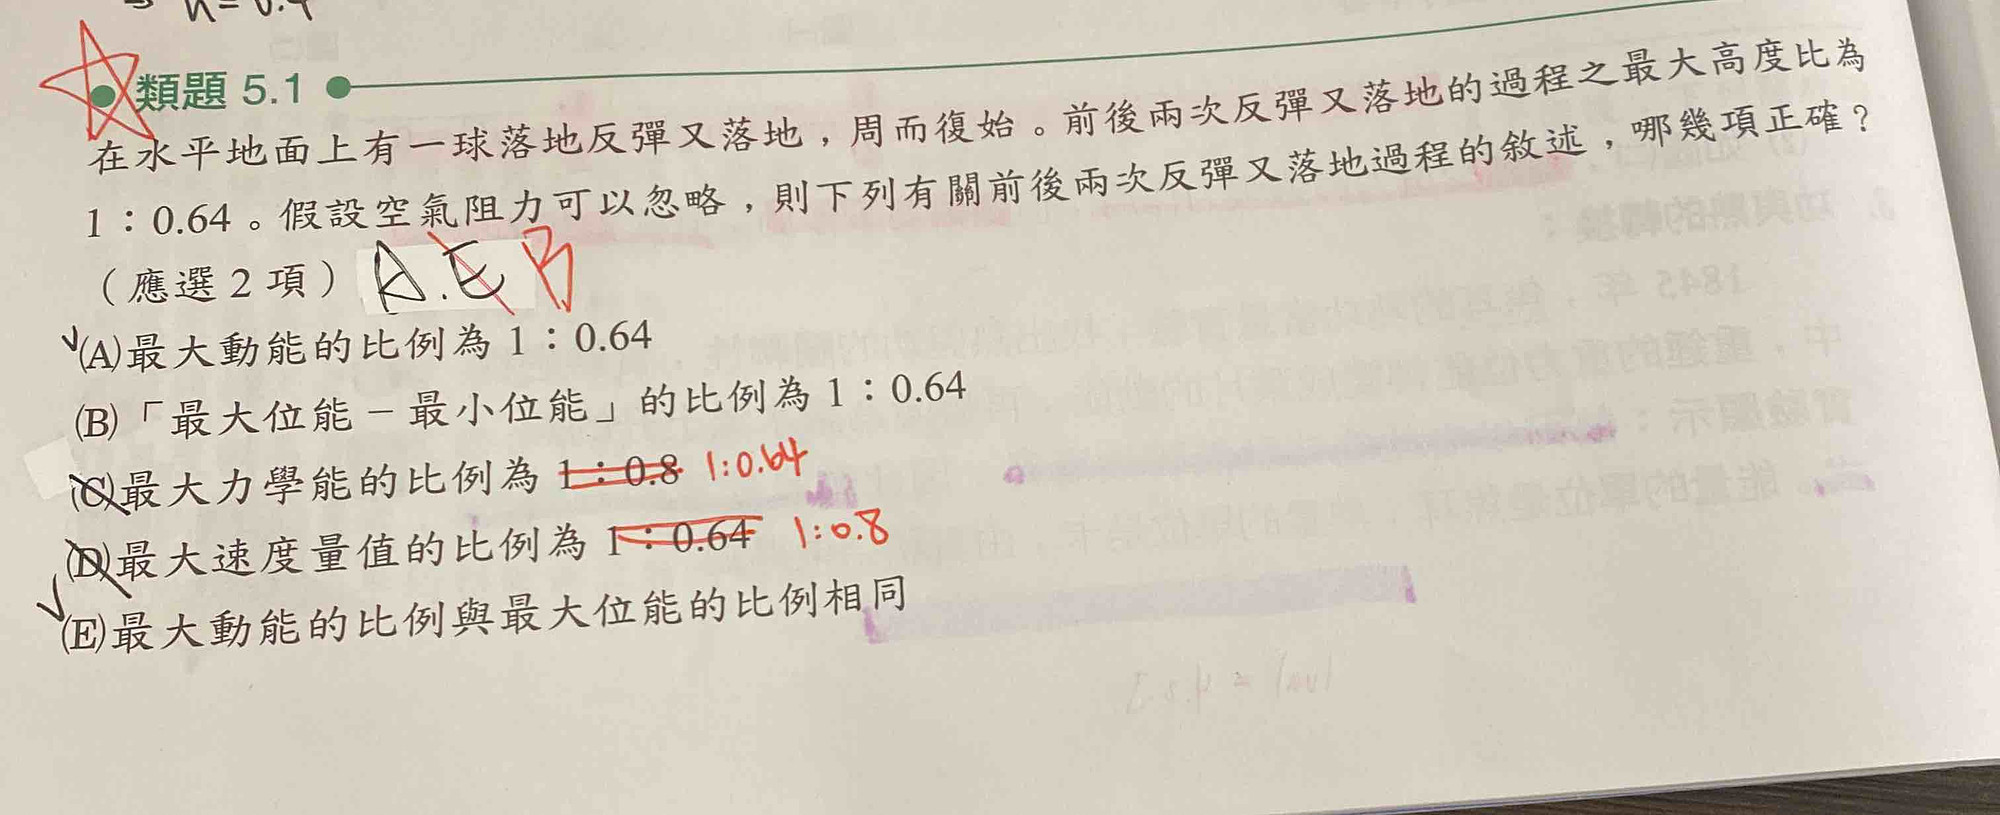 類題 5.1
在水平地面上有一球落地反彈又落地，周而復始。前後兩次反彈又落地的過程之最大高度比為
1：0.64。假設空氣阻力可以忽略，則下列有關前後兩次反彈又落地過程的敘述，哪幾項正確？
（應選 2 項） A.E B
(A)最大動能的比例為 1：0.64
(B)「最大位能－最小位能」的比例為 1：0.64
(C)最大力學能的比例為 1：0.8 1:0.64
(D)最大速度量值的比例為 1：0.64 1:0.8
(E)最大動能的比例與最大位能的比例相同